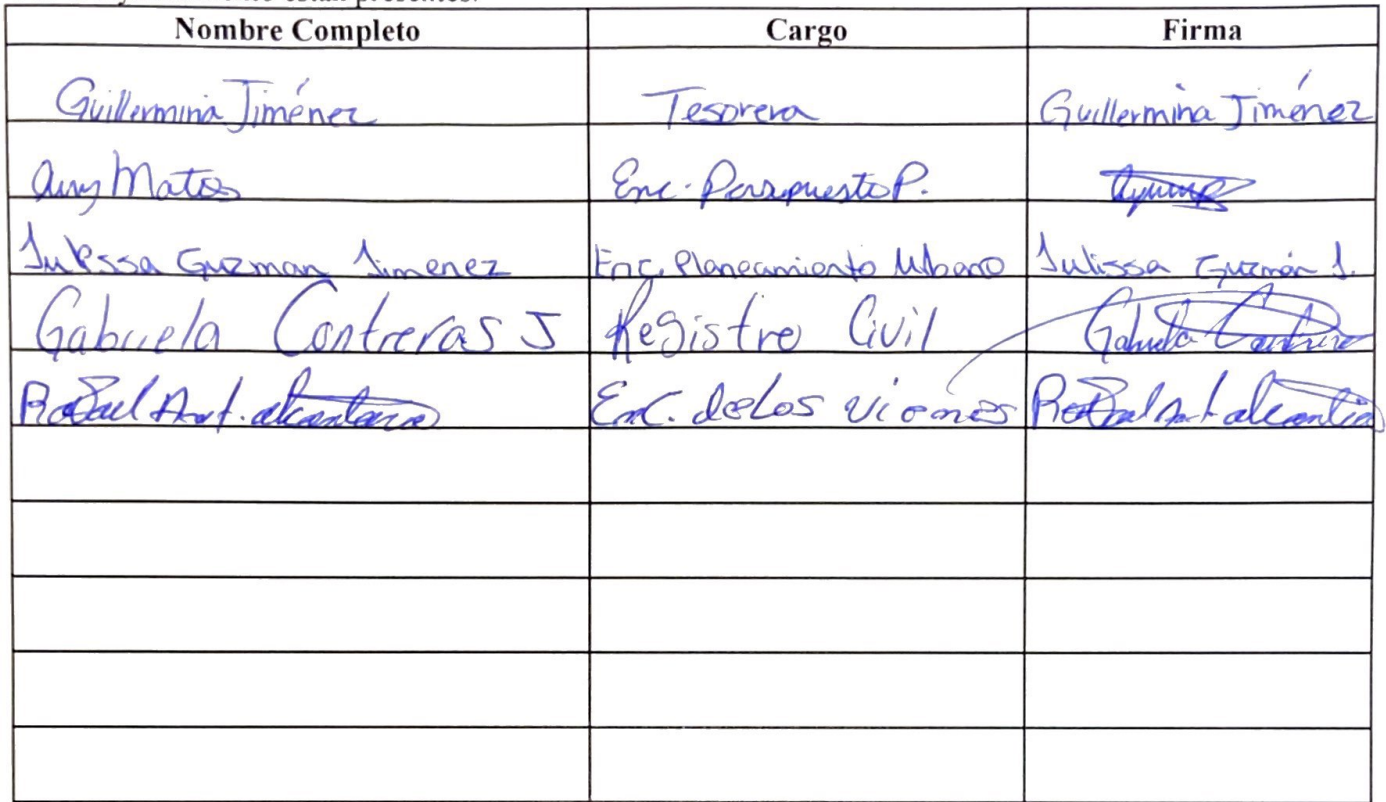 están presentes.
Nombre Completo Cargo Firma
Guillermina Jiménez Tesorera Guillermina Jiménez
Any Matos Enc. P.
Julissa Guzman Jimenez Enc. Planeamiento Urbano Julissa Guzmán J.
Gabriela Contreras J Registro Civil Gabriela
Rafael Ant. alcantara Enc. de Los Rafael Ant alcantara